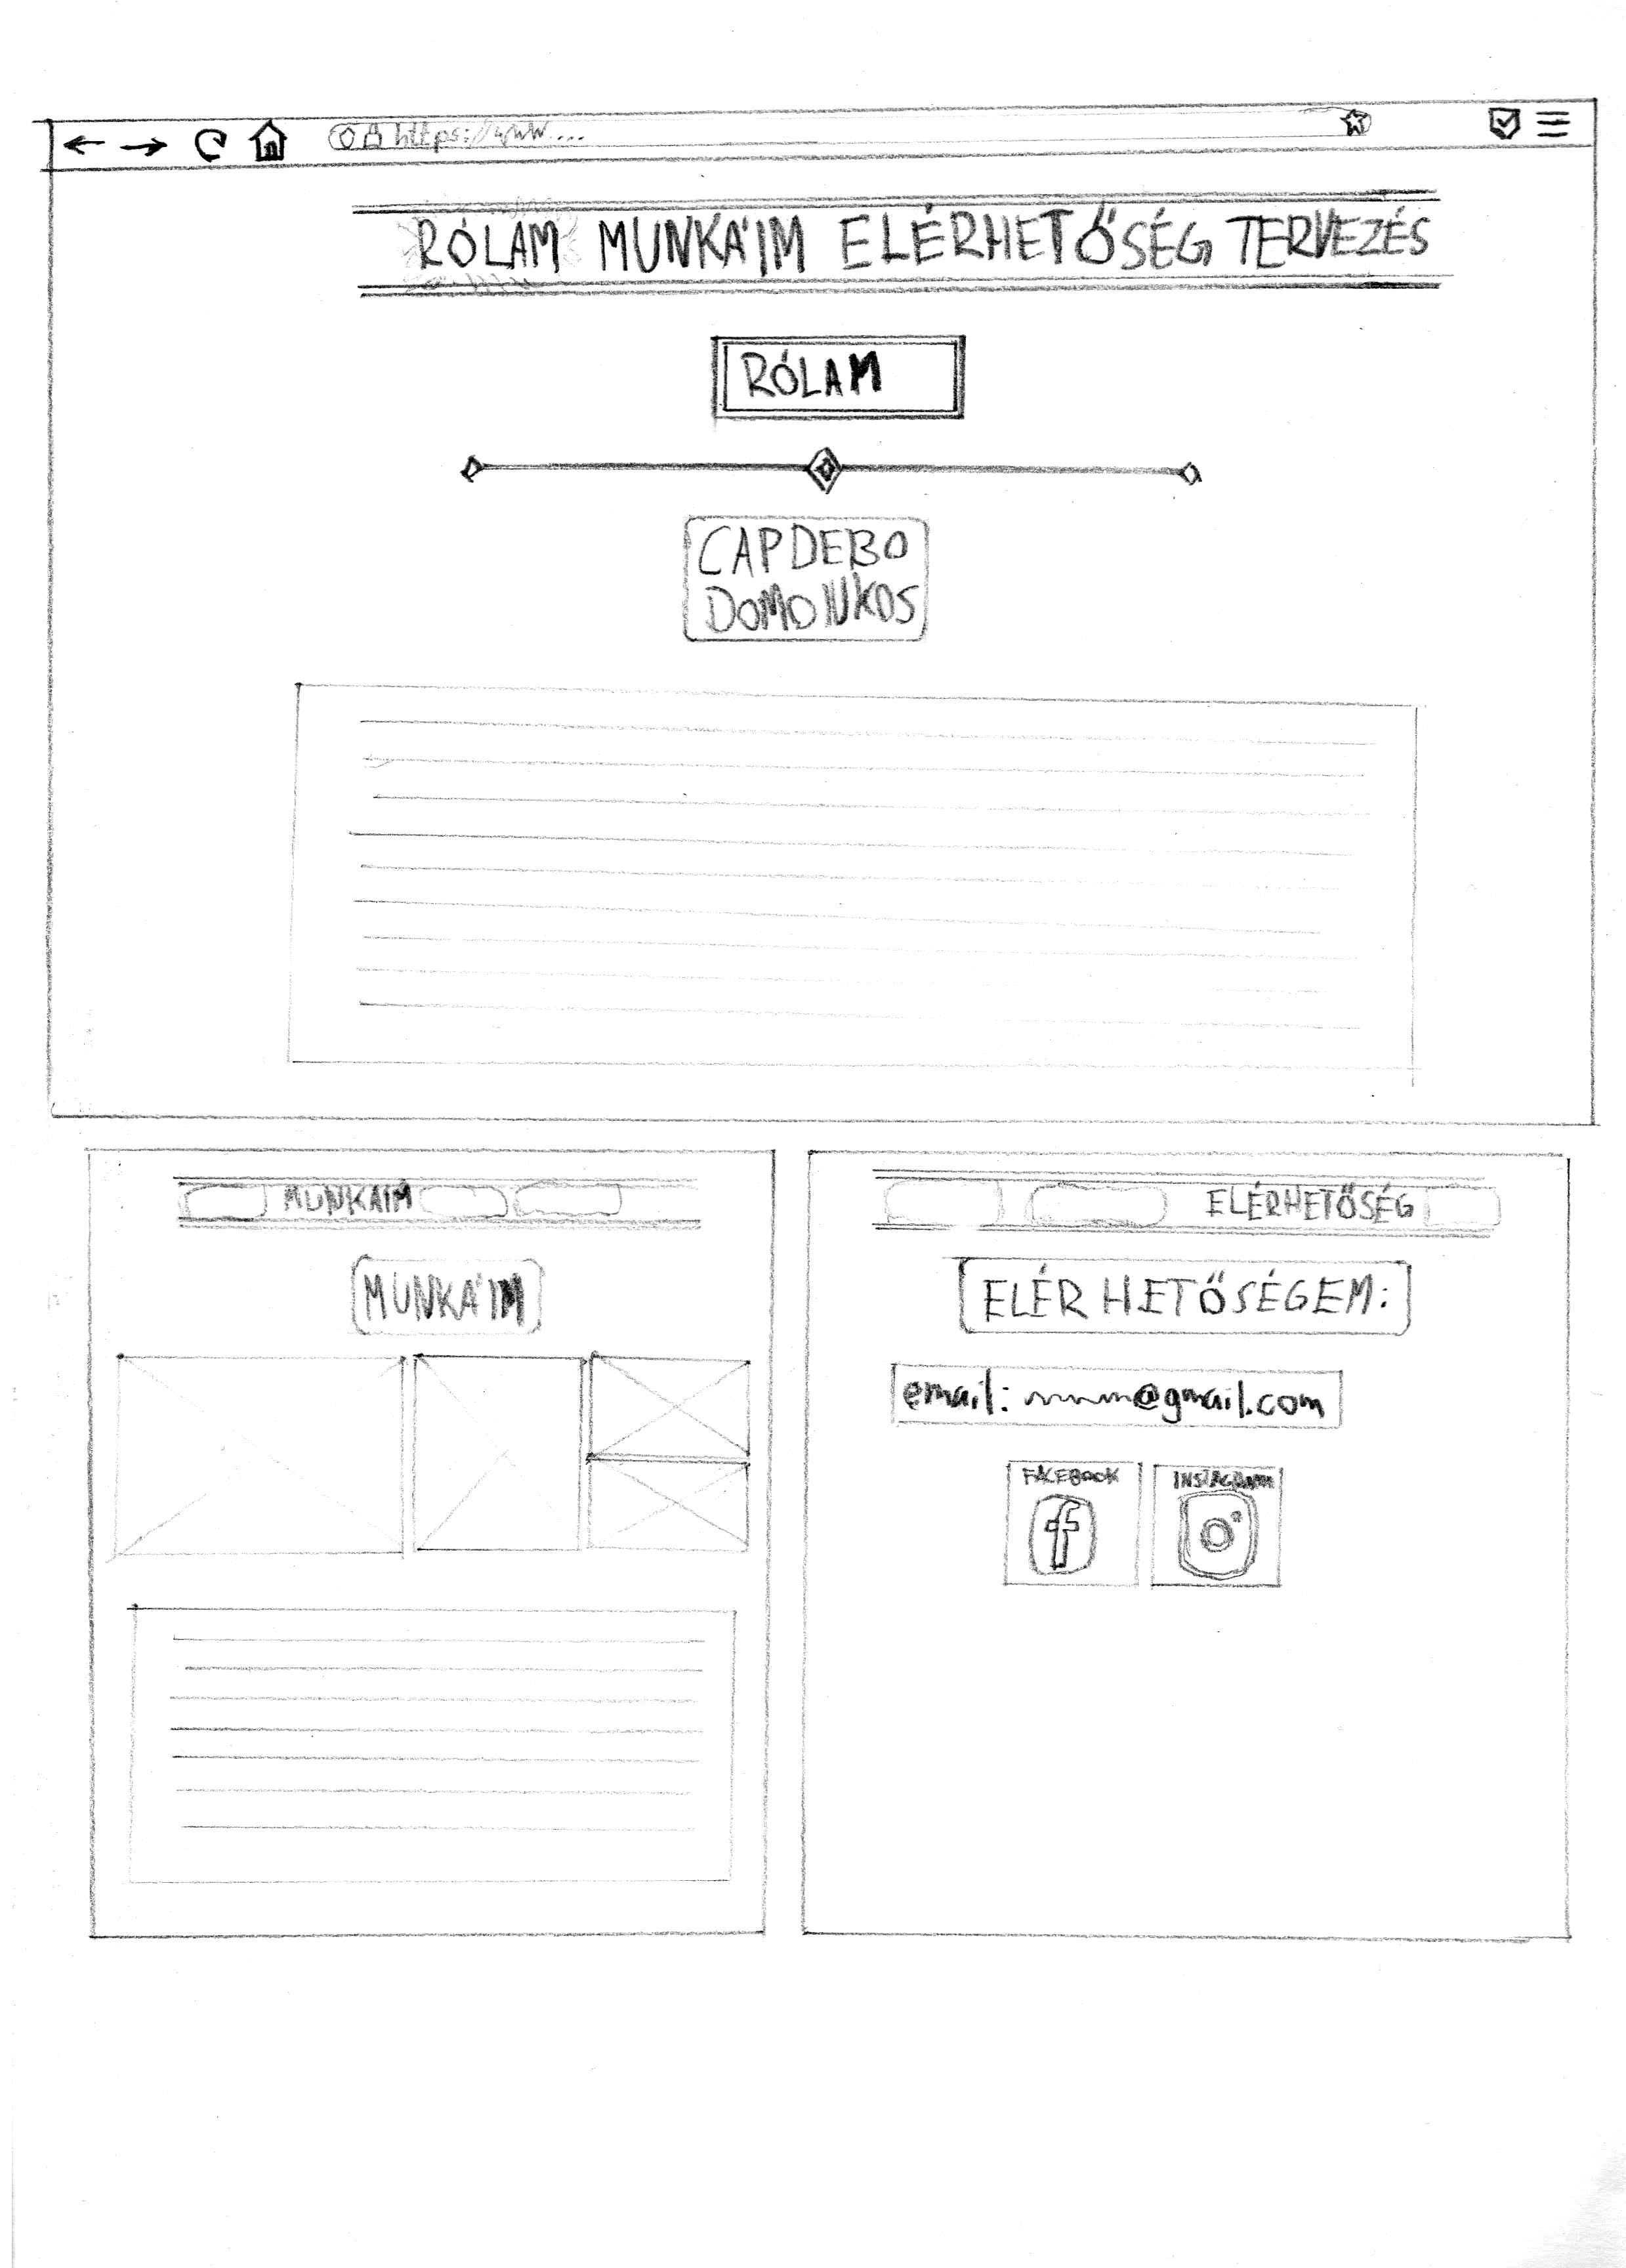 https://www....
RÓLAM MUNKÁIM ELÉRHETŐSÉG TERVEZÉS
RÓLAM
CAPDEBO
DOMONKOS
MUNKÁIM
MUNKÁIM
ELÉRHETŐSÉG
ELÉRHETŐSÉGEM:
email: @gmail.com
FACEBOOK
INSTAGRAM
f